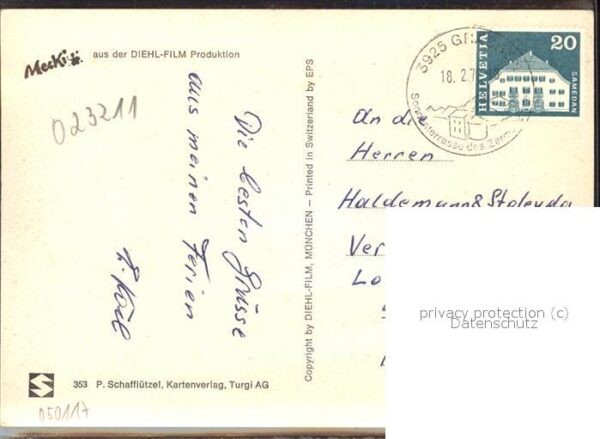 Mecki
aus der DIEHL-FILM Produktion
023211
Die besten Grüsse
aus meinen Ferien
353 P. Schafflützel, Kartenverlag, Turgi AG
050117
Copyright by DIEHL-FILM, MÜNCHEN – Printed in Switzerland by EPS
3925 GR
18. 2.7
Sonnenterrasse des Zerm
HELVETIA
20
SAMEDAN
An die
Herren
Haldemann &
Ver
Lo
privacy protection (c)
Datenschutz